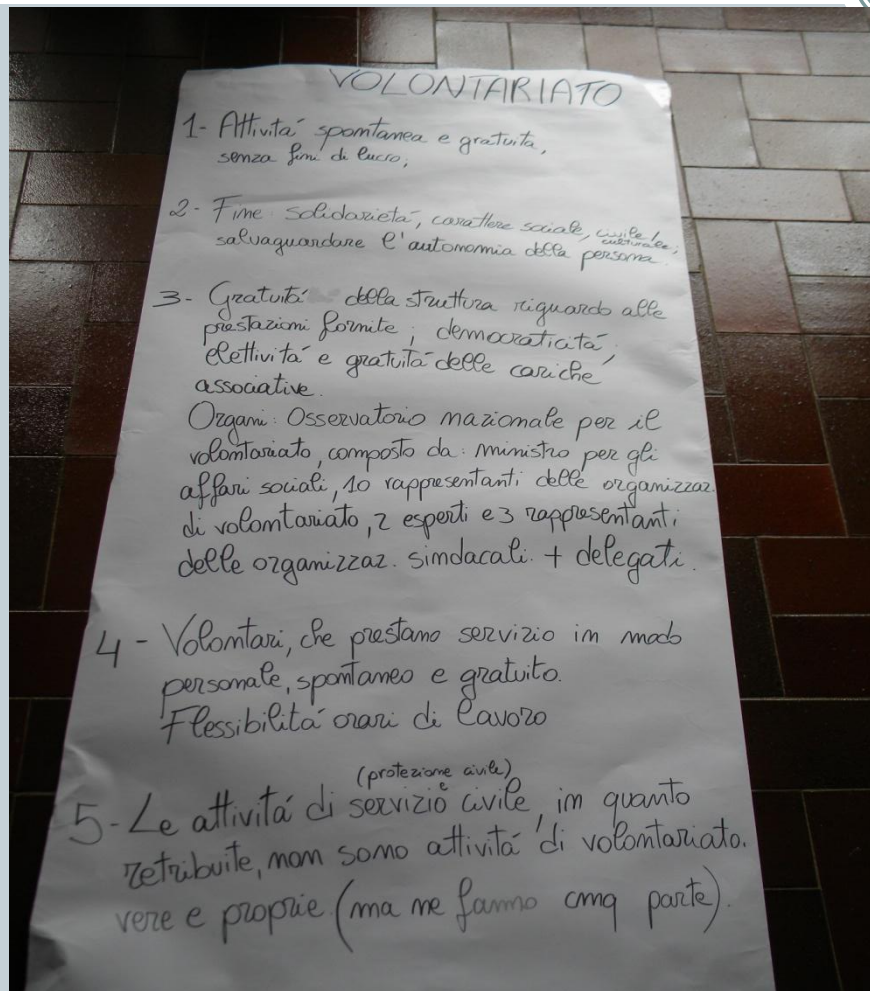 VOLONTARIATO
1- Attivitá spontanea e gratuita,
senza fini di lucro;
2- Fine solidarietá, carattere sociale, civile/
culturale;
salvaguardare l'autonomia della persona.
3- Gratuitá della struttura riguardo alle
prestazioni fornite; democraticitá,
elettivitá e gratuitá delle cariche
associative.
Organi: Osservatorio nazionale per il
volontariato, composto da: ministro per gli
affari sociali, 10 rappresentanti delle organizzaz.
di volontariato, 2 esperti e 3 rappresentanti
delle organizzaz. sindacali. + delegati.
4- Volontari, che prestano servizio in modo
personale, spontaneo e gratuito.
Flessibilitá orari di lavoro
(protezione civile)
e
5- Le attivitá di servizio civile, in quanto
retribuite, non sono attivitá di volontariato.
vere e proprie (ma ne fanno cmq parte).